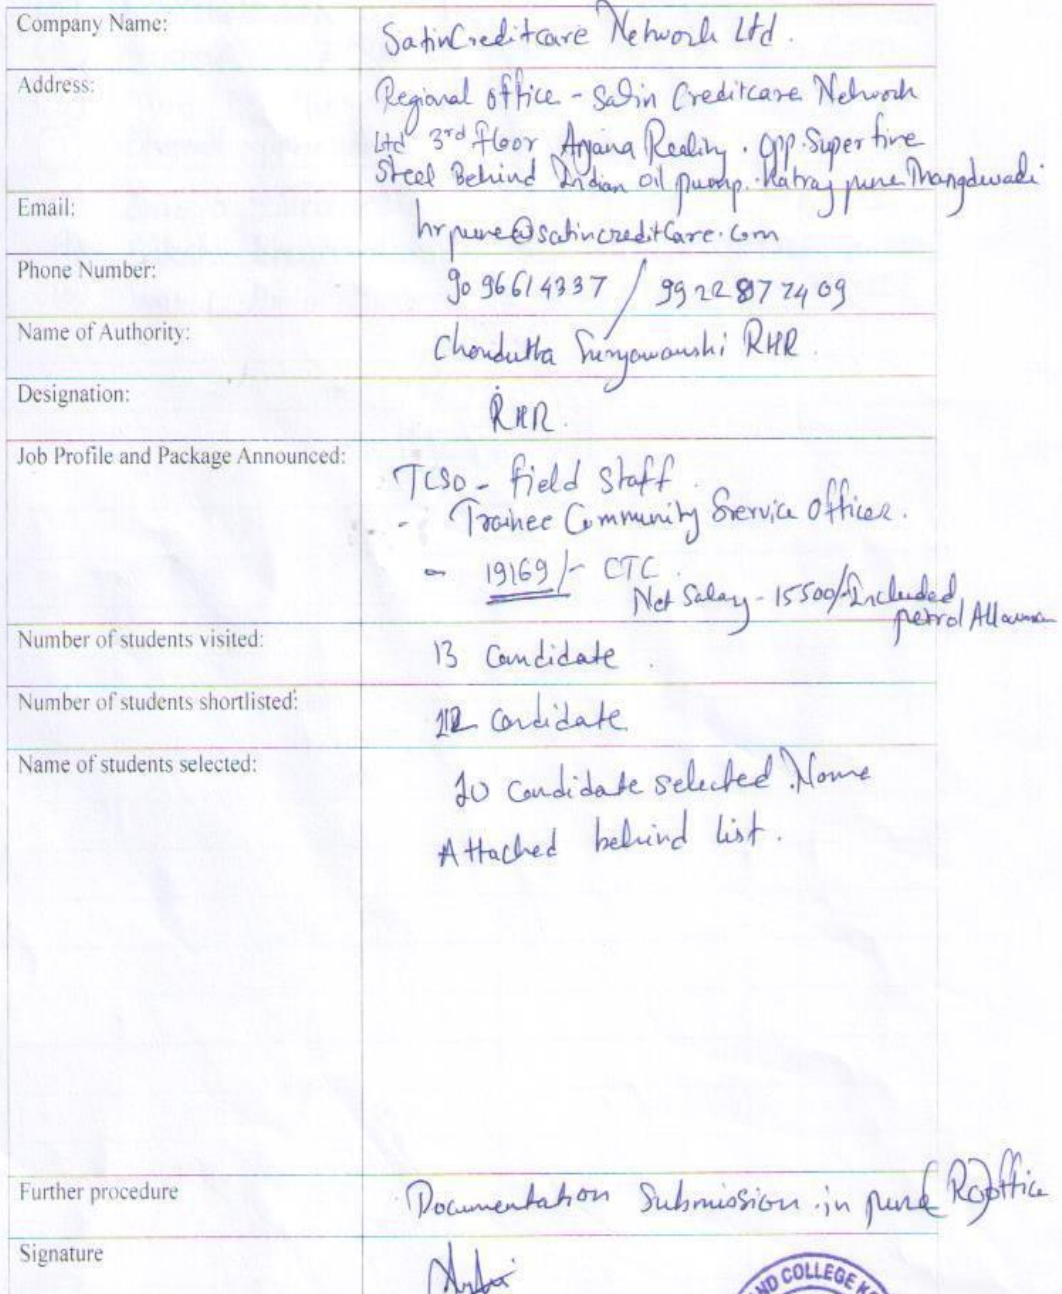 Company Name: SatinCreditcare Network Ltd.
Address: Regional office - Satin Creditcare Network
Ltd 3rd floor Opp. Super fine
Steel Behind Indian Oil pump. Katraj pune
Email: hrpune@satincreditcare.com
Phone Number: 9096614337 /
Name of Authority: RHR.
Designation: RHR.
Job Profile and Package Announced: TCSO - field Staff
- Trainee Community Service Officer.
- 19169/- CTC.
Net Salary - 15500/- Included
petrol
Number of students visited: 13 Candidate.
Number of students shortlisted: candidate
Name of students selected: candidate selected. Name
Attached behind list.
Further procedure Documentation Submission in pune (RO) office
Signature
AND COLLEGE